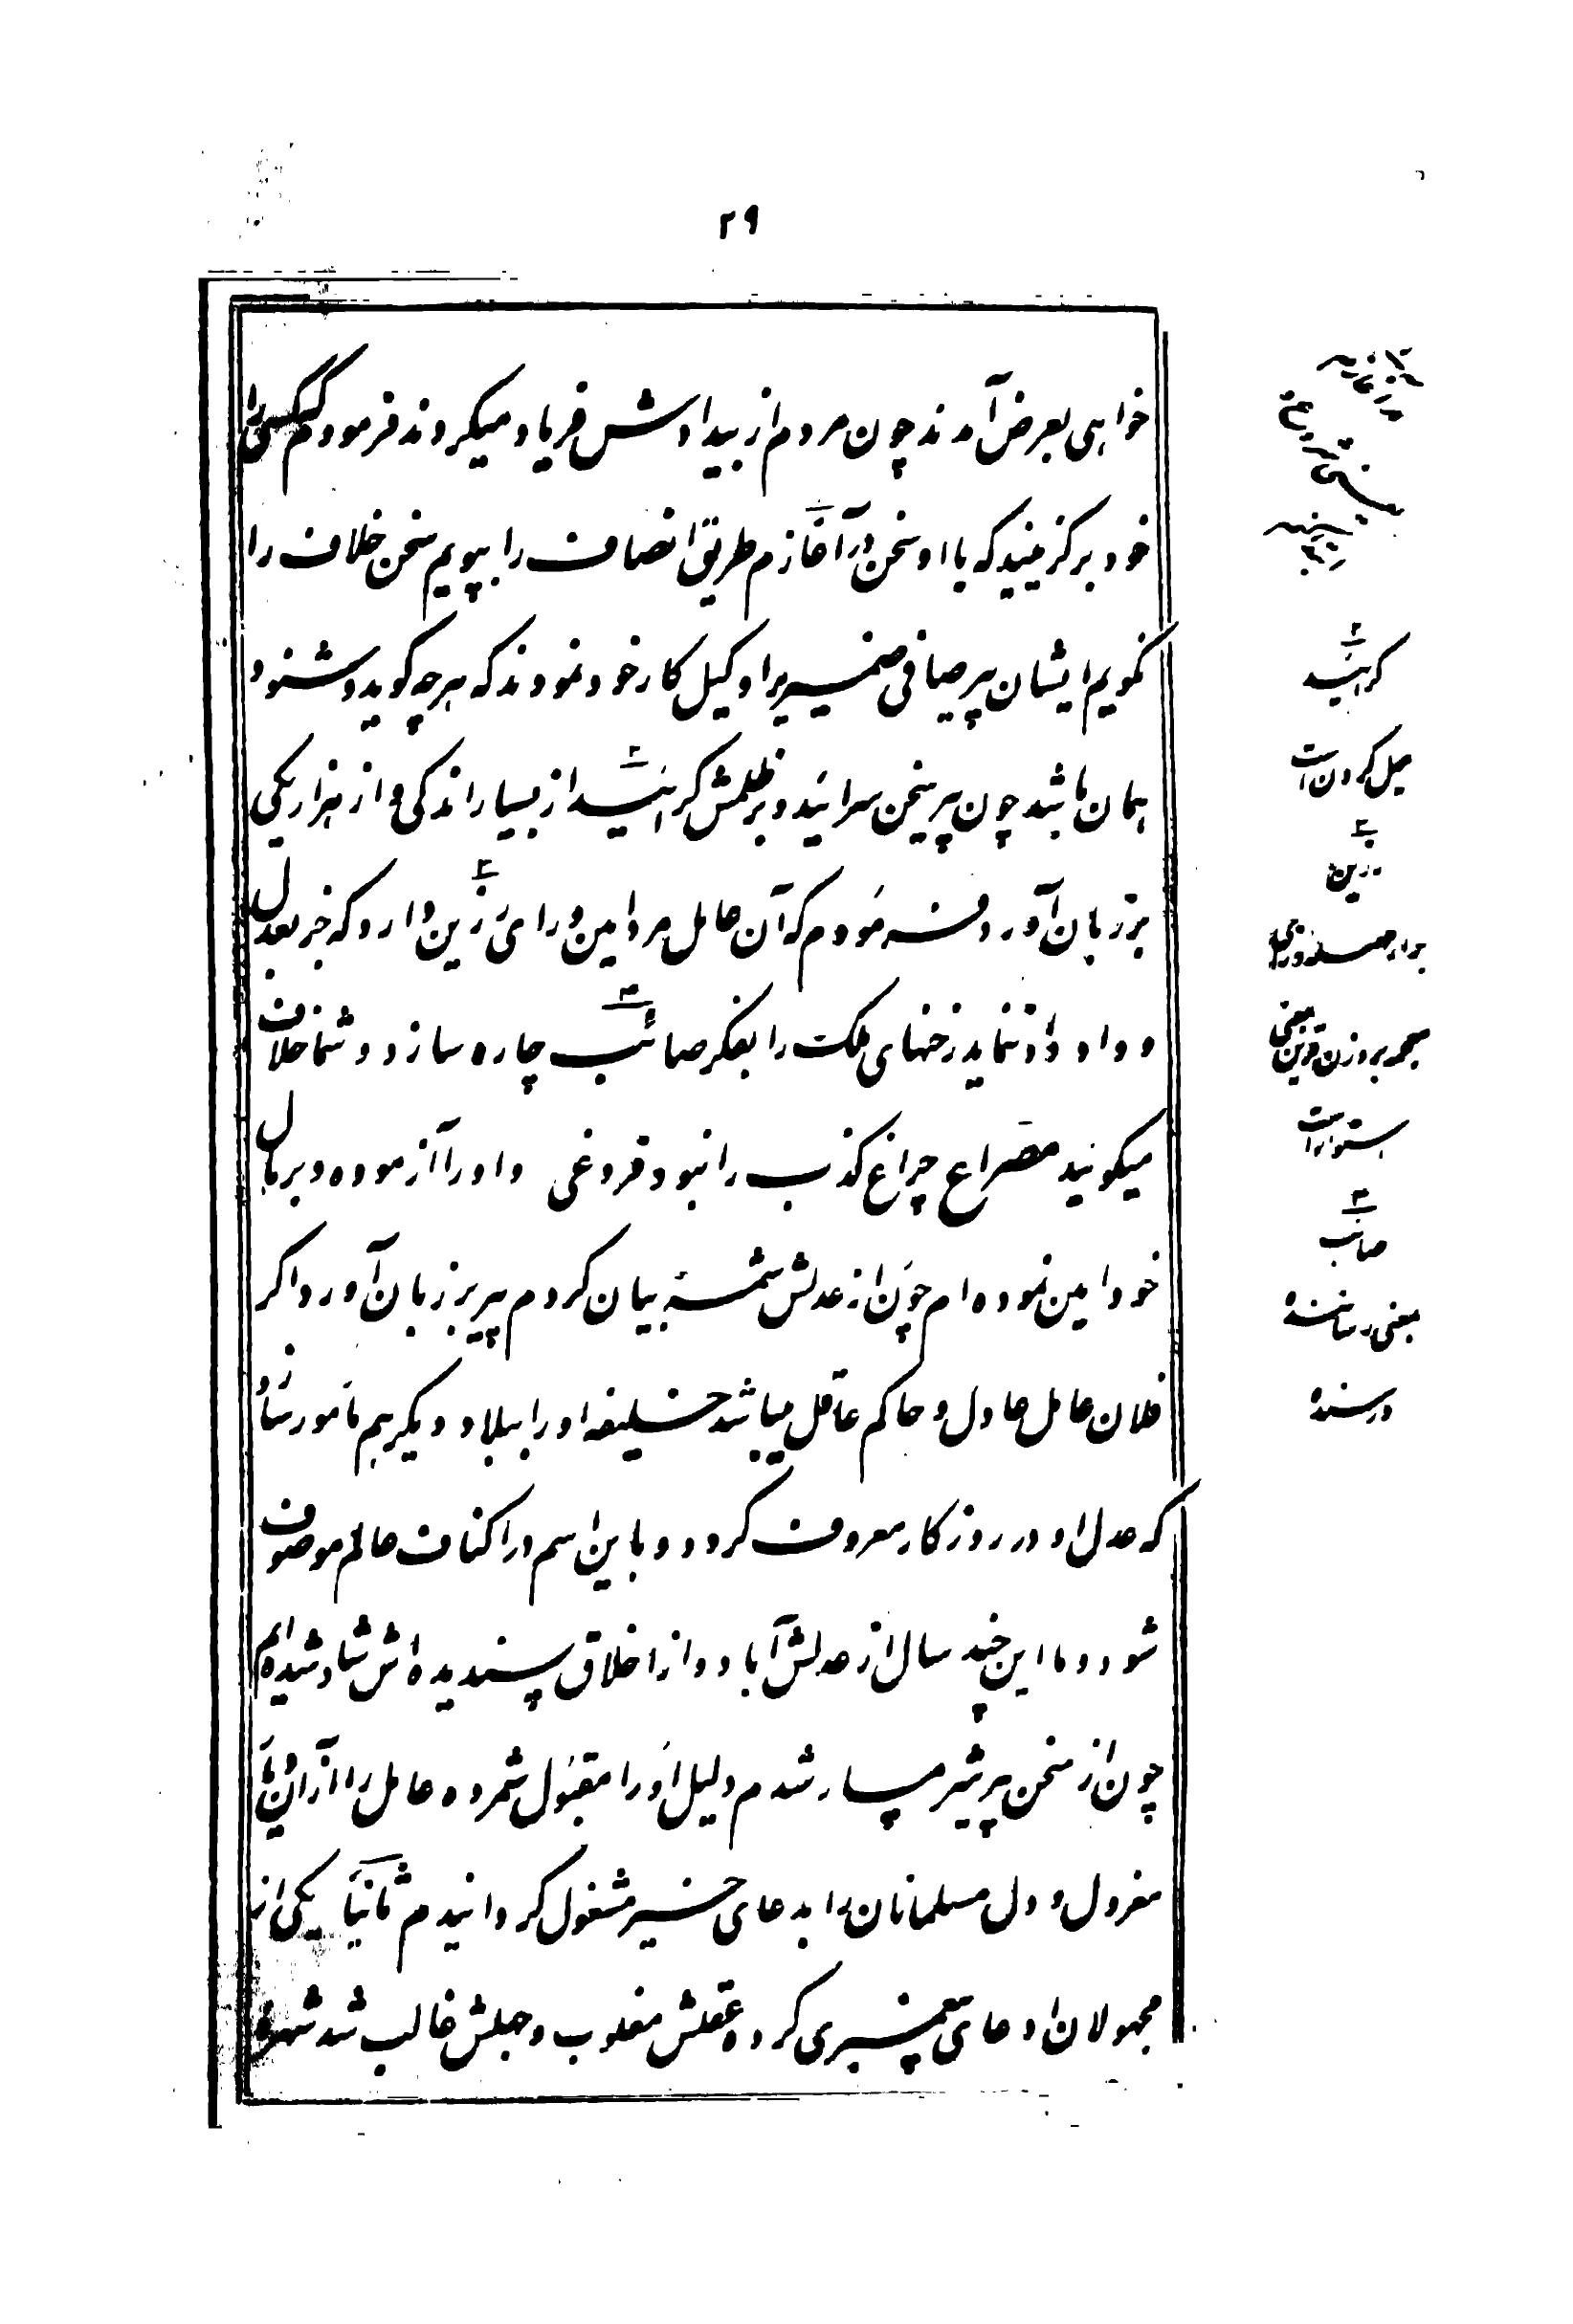 ۲۹
خواهی بعرض آمدند چون مردم از بیدادش فریاد میکردند فرمودم کسی را
خود برگزینید که با او سخن در آغازم طریق انصاف را بپویم سخن خلاف را
نگویم ایشان پیر صافی ضمیر را وکیل کار خود نمودند که هرچه گوید و شنود
همان باشد چون پیر سخن سرائید و بر ظلمش گرائید از بسیار اندکی و از هزار یکی
بر زبان آورد فرمودم که آن عامل مرد امین و رای رزین دارد که جز بعدل
و داد داد ننماید رخنهای ملک را بفکر صائب چاره سازد و شما خلاف
میگوئید مصراع چراغ کذب را نبود فروغی و او را آزموده و بر مال
خود امین نموده ام چون از عدلش شمهٔ بیان کردم پیر بر زبان آورد اگر
فلان عامل عادل و حاکم عاقل میباشد خلیفه او را ببلاد دیگر هم مامور نماید
که عدل او در روزگار معروف گردد و باین اسم در اکناف عالم موصوف
شود و ما این چند سال از عدلش آباد و از اخلاق پسندیده اش شاد شده ایم
چون از سخن پیر شرمسار شدم دلیل او را مقبول شمرده عامل را از آن
معزول و دل مسلمانان را بدعای خیر مشغول گردانیدم ثانیا یکی از
مجهولان ادعای پیغمبری کرده عقلش مغلوب و جهلش غالب شد شهرهٔ
۱
گرائید
میل کردن است
۲
رزین
معجمه بر وزن قرین بمعنی
استوار است
۳
صائب
بمعنی رساننده
و رسنده